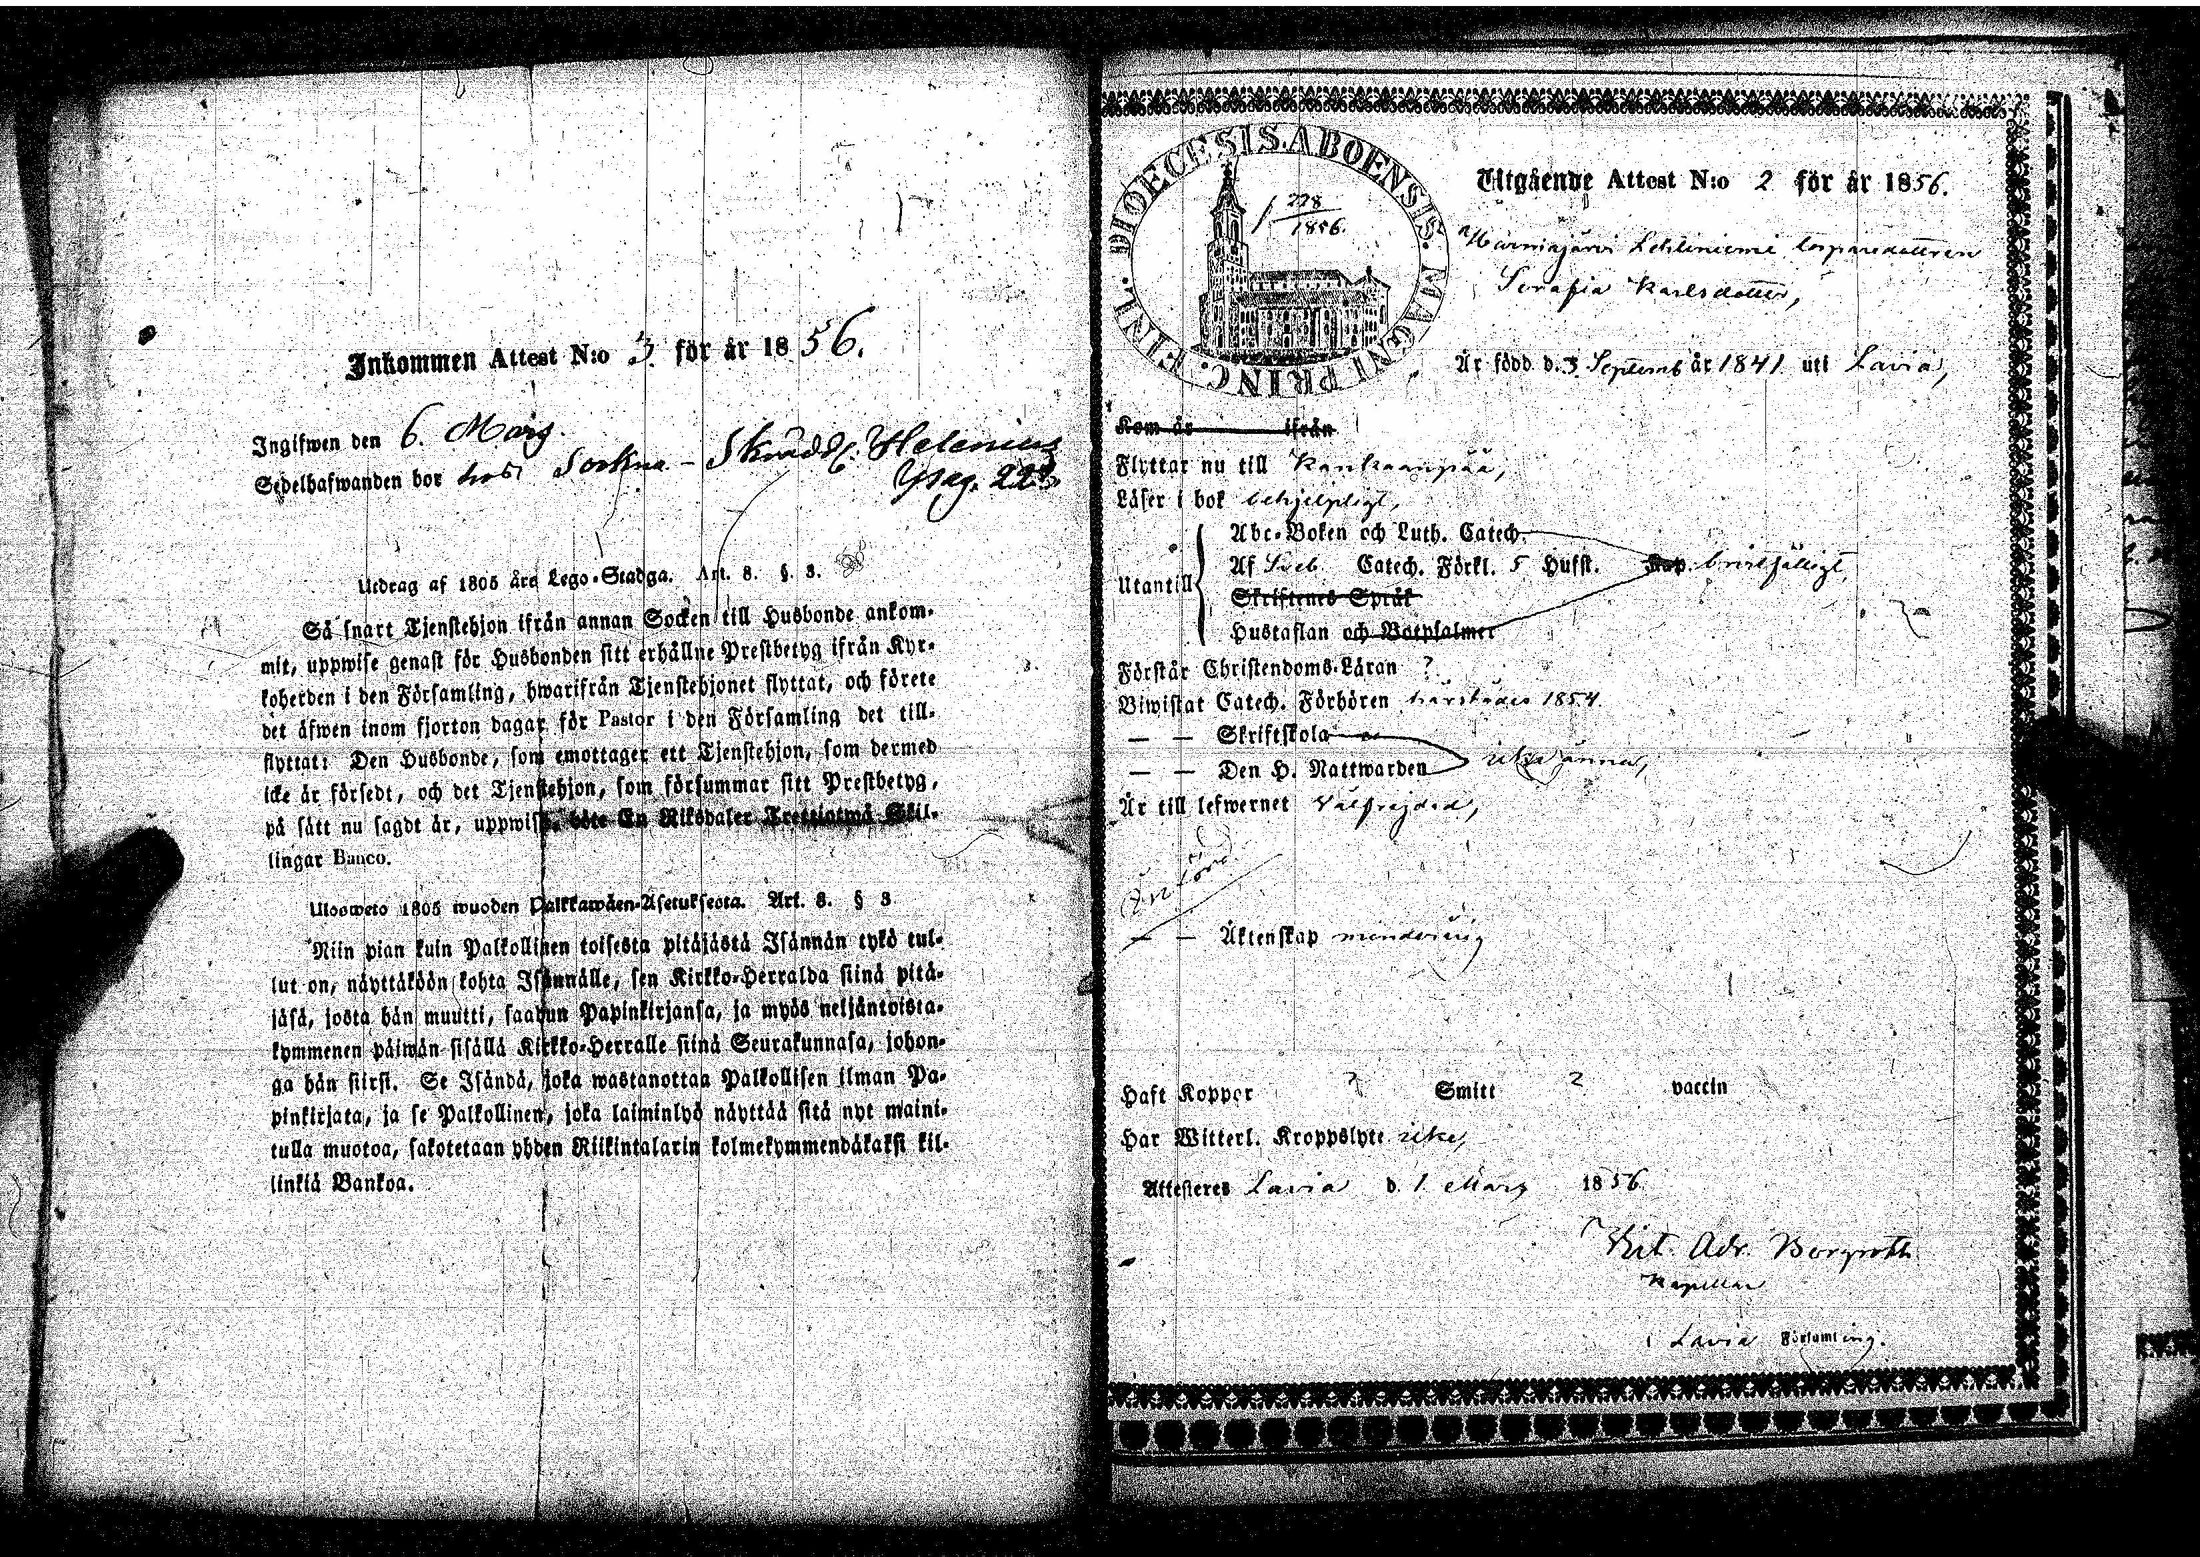 Inkommen Attest N:o 3 för år 1856.
Ingifwen den 6. Mars
Sedelhafwanden bor hos Sockne-Skrädd. Helenius
pag. 223
Utdrag af 1805 års Lego-Stadga. Art. 8. §. 3.
Så snart Tjenstehjon ifrån annan Socken till Husbonde ankom-
mit, uppwise genast för Husbonden sitt erhållne Prestbetyg ifrån Kyr-
koherden i den Församling, hwarifrån Tjenstehjonet flyttat, och förete
det äfwen inom fjorton dagar för Pastor i den Församling det till-
flyttat: Den Husbonde, som emottager ett Tjenstehjon, som dermed
icke är försedt, och det Tjenstehjon, som försummar sitt Prestbetyg,
på sätt nu sagdt är, uppwisa, böte En Riksdaler Trettiotwå Skil-
lingar Banco.
Ulosweto 1805 wuoden Palkkawäen-Asetuksesta. Art. 8. § 3
Niin pian kuin Palkollinen toisesta pitäjästä Isännän tykö tul-
lut on, näyttäköön kohta Isännälle, sen Kirkko-Herralda siinä pitä-
jäsä, josta hän muutti, saadun Papinkirjansa, ja myös neljäntoista-
kymmenen päiwän sisällä Kirkko-Herralle siinä Seurakunnasa, johon-
ga hän siirsi. Se Isändä, joka wastanottaa Palkollisen ilman Pa-
pinkirjata, ja se Palkollinen, joka laiminlyö näyttää sitä nyt maini-
tulla muotoa, sakotetaan yhden Riikintalarin kolmekymmendäkaksi kil-
linkiä Bankoa.
DIOECESIS ABOENSIS. MAGNI PRINC. FINL.
228
1856.
Utgående Attest N:o 2 för år 1856.
Lehtiniemi torparedottren
Serafia Karlsdotter,
Är född d. 3 Septemb år 1841 uti Lavia,
Kom år ifrån
Flyttar nu till Kankaanpää,
Läser i bok behjelpligt,
Utantill
Abc-Boken och Luth. Catech.
Af Sveb. Catech. Förkl. 5 Hufst. Kap. bristfälligt,
Skriftenes Språk
Hustaflan och Botpsalmer
Förstår Christendoms-Läran ?
Biwistat Catech. Förhören härstädes 1854.
— — Skriftskola
— — Den H. Nattwarden icke ännu,
Är till lefwernet Välfrejdad,
— — Äktenskap minderårig
Haft Koppor ? Smitt ? vaccin
Har Witterl. Kroppslyte icke,
Attesteres Lavia d. 1 Mars 1856.
Vict. Adr. Borgroth
Kapellan
i Lavia Församling.